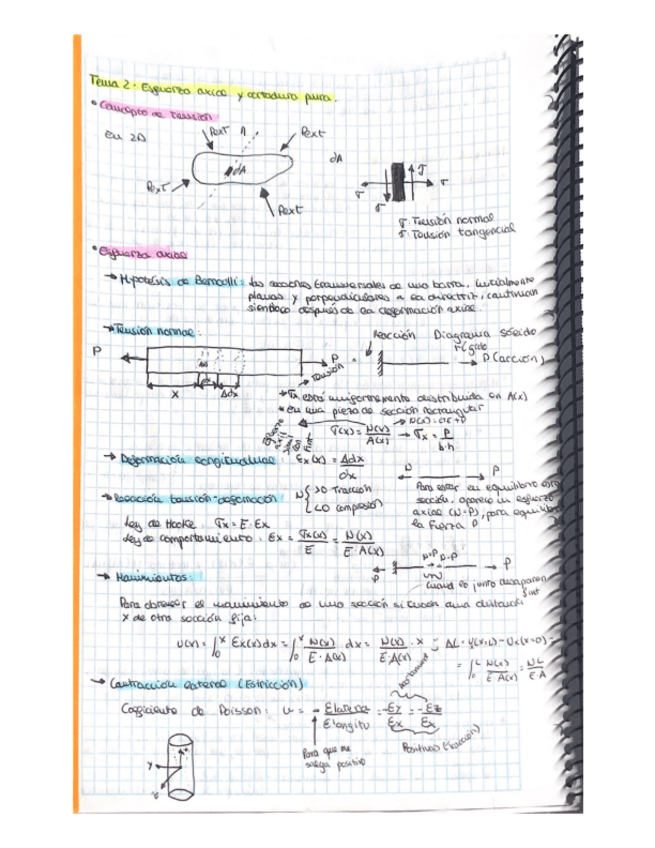 Tema 2: Esfuerzo axial y cortadura pura.
• Concepto de tensión
en 2D
Pext n Pext
dA
dA
Pext
Pext
σ τ σ
τ
σ: Tensión normal
τ: Tensión tangencial
• Esfuerzo axial
→ Hipótesis de Bernoulli: Las secciones transversales de una barra, inicialmente
planas y perpendiculares a la directriz, continúan
siendo después de la deformación axial.
→ Tensión normal:
Reacción Diagrama sólido
P P Tensión = P (acción)
x dx Δdx
→ σx está uniformemente distribuida en A(x)
• en una pieza de sección rectangular
→ N(x) = cte = P
σ(x) = N(x)/A(x) → σx = P/b·h
→ Deformación longitudinal: εx(x) = Δdx/dx
N P
→ Relación tensión-deformación N { >0 Tracción
<0 compresión
Para estar en equilibrio esta
sección, aparece un esfuerzo
axial (N=P), para equilibrar
la fuerza P
Ley de Hooke: σx = E·εx
Ley de comportamiento: εx = σx(x)/E = N(x)/E·A(x)
P N=P N=P P
Cuando lo junto desaparen
fint
→ Movimientos:
Para obtener el movimiento de una sección situada a una distancia
x de otra sección fija:
u(x) = ∫₀ˣ εx(x)dx = ∫₀ˣ N(x)/E·A(x) dx = N(x)/E·A(x) · x ΔL = u(x=L) - u(x=0) =
= ∫₀ᴸ N(x)/E·A(x) = NL/E·A
→ Contracción lateral (Estricción)
Coeficiente de Poisson: ν = - εlateral/εlongitu = -εy/εx = -εz/εx
Para que me
salga positivo
Positivo (tracción)
y x
z